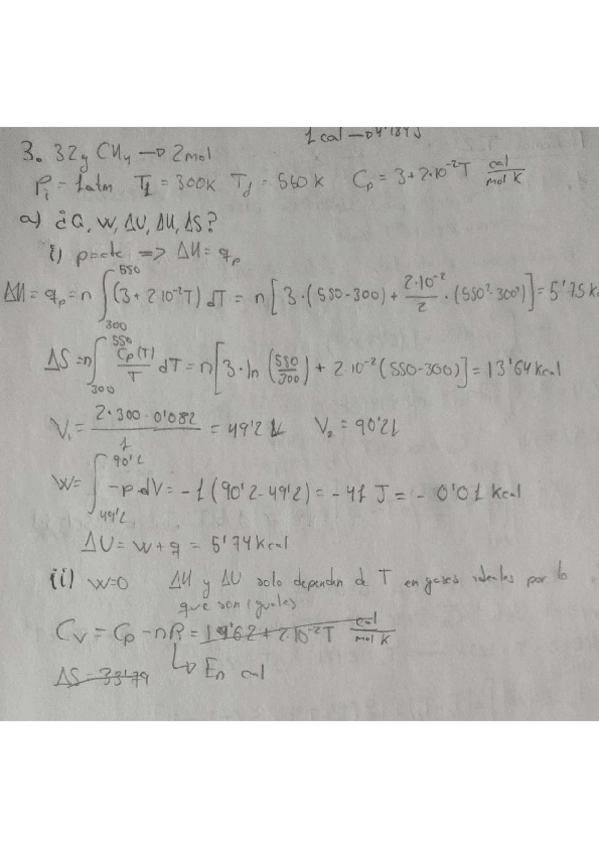 1 cal → 4'184 J
3. 32g CH4 → 2mol
Pi = 1atm T1 = 300K Tf = 550 K Cp = 3+2·10^-2 T cal/mol K
a) ¿Q, W, ΔU, ΔH, ΔS?
i) p=cte => ΔH = qp
ΔH = qp = n ∫_300^550 (3+2·10^-2 T) dT = n [3·(550-300) + 2·10^-2/2 · (550²-300²)] = 5'75 K
ΔS = n ∫_300^550 Cp(T)/T dT = n [3·ln (550/300) + 2·10^-2 (550-300)] = 13'64 Kcal
V1 = 2·300·0'082/1 = 49'2 L V2 = 90'2L
W = ∫_49'2^90'2 -p dV = -1 (90'2-49'2) = -41 J = -0'01 Kcal
ΔU = W + q = 5'74 Kcal
ii) W=0 ΔH y ΔU solo dependen de T en gases ideales por lo
que son iguales
Cv = Cp - nR = 19'62 + 2·10^-2 T cal/mol K
↳ En cal
ΔS = 33'79